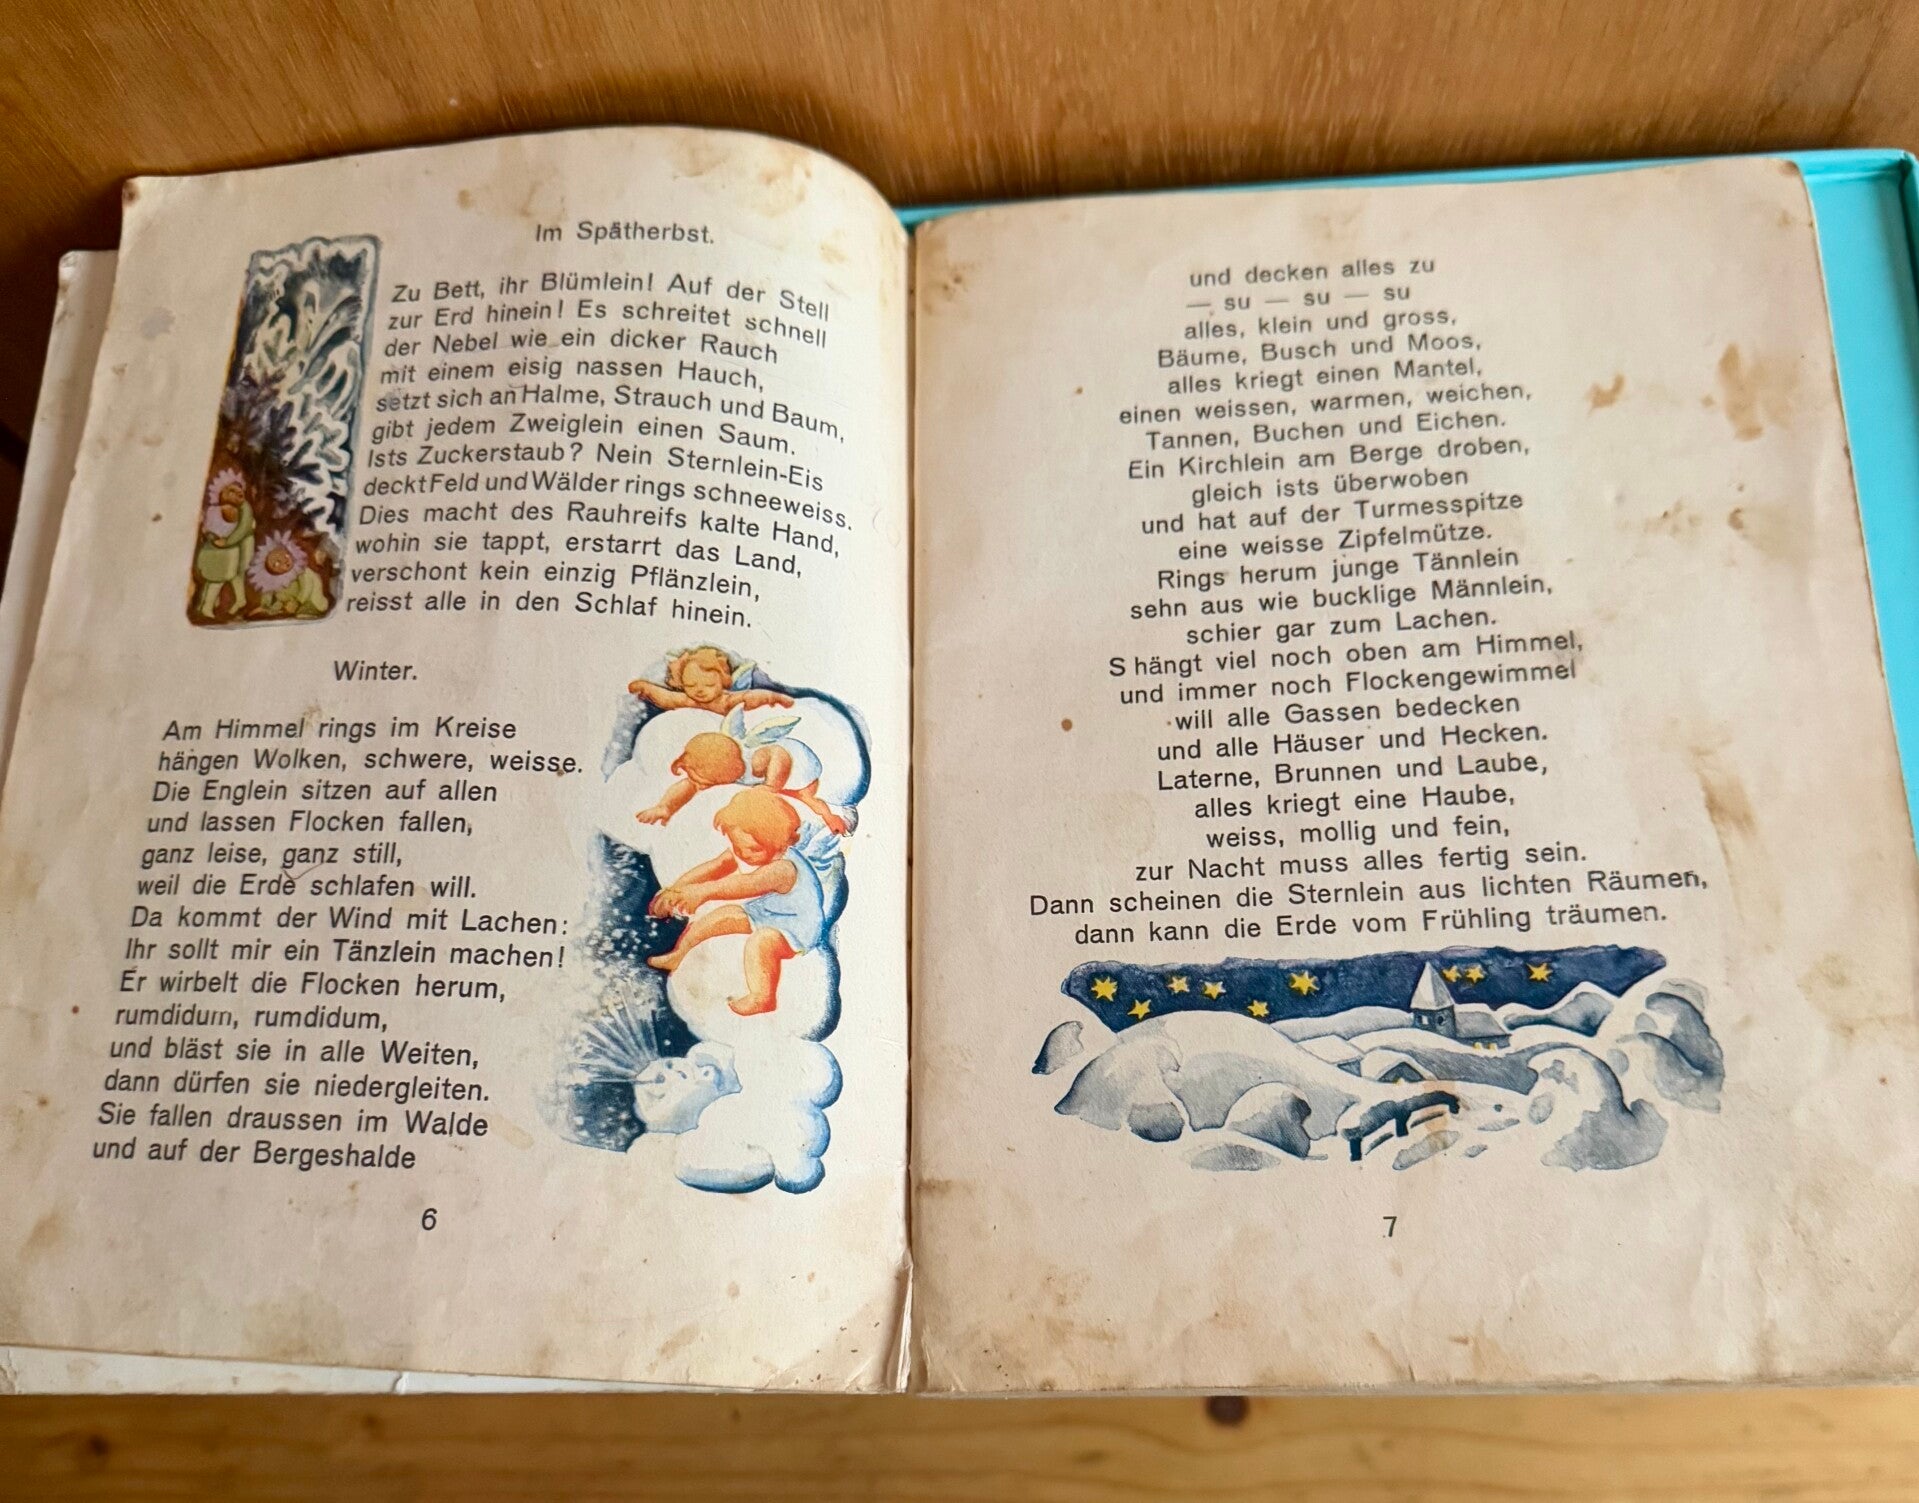 Im Spätherbst.
Zu Bett, ihr Blümlein! Auf der Stell
zur Erd hinein! Es schreitet schnell
der Nebel wie ein dicker Rauch
mit einem eisig nassen Hauch,
setzt sich an Halme, Strauch und Baum,
gibt jedem Zweiglein einen Saum.
Ists Zuckerstaub? Nein Sternlein-Eis
deckt Feld und Wälder rings schneeweiss.
Dies macht des Rauhreifs kalte Hand,
wohin sie tappt, erstarrt das Land,
verschont kein einzig Pflänzlein,
reisst alle in den Schlaf hinein.
Winter.
Am Himmel rings im Kreise
hängen Wolken, schwere, weisse.
Die Englein sitzen auf allen
und lassen Flocken fallen,
ganz leise, ganz still,
weil die Erde schlafen will.
Da kommt der Wind mit Lachen:
Ihr sollt mir ein Tänzlein machen!
Er wirbelt die Flocken herum,
rumdidum, rumdidum,
und bläst sie in alle Weiten,
dann dürfen sie niedergleiten.
Sie fallen draussen im Walde
und auf der Bergeshalde
6
und decken alles zu
— su — su — su
alles, klein und gross,
Bäume, Busch und Moos,
alles kriegt einen Mantel,
einen weissen, warmen, weichen,
Tannen, Buchen und Eichen.
Ein Kirchlein am Berge droben,
gleich ists überwoben
und hat auf der Turmesspitze
eine weisse Zipfelmütze.
Rings herum junge Tännlein
sehn aus wie bucklige Männlein,
schier gar zum Lachen.
S hängt viel noch oben am Himmel,
und immer noch Flockengewimmel
will alle Gassen bedecken
und alle Häuser und Hecken.
Laterne, Brunnen und Laube,
alles kriegt eine Haube,
weiss, mollig und fein,
zur Nacht muss alles fertig sein.
Dann scheinen die Sternlein aus lichten Räumen,
dann kann die Erde vom Frühling träumen.
7